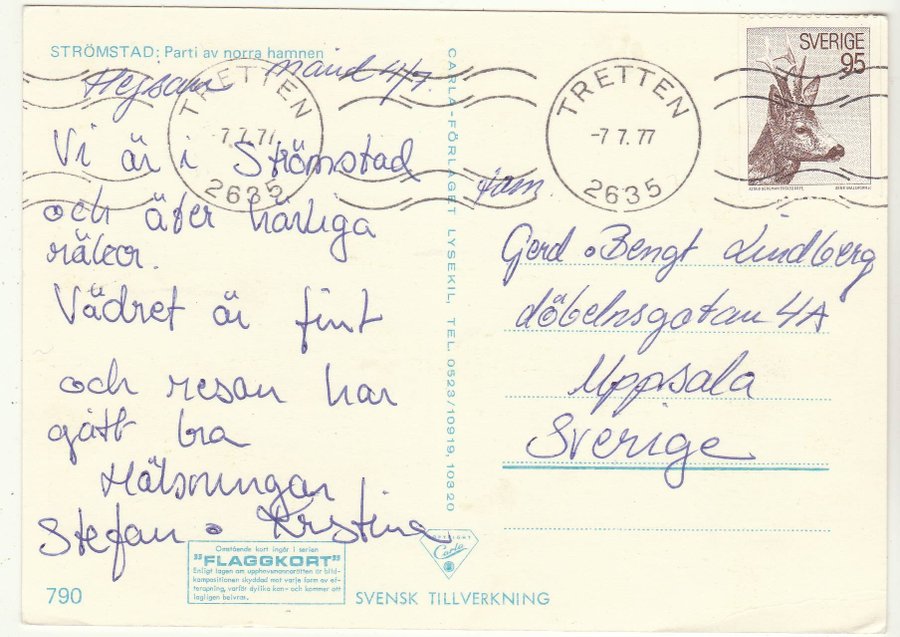 STRÖMSTAD: Parti av norra hamnen
Hejsan månd 4/7.
Vi är i Strömstad
och äter härliga
räkor.
Vädret är fint
och resan har
gått bra
Hälsningar
Stefan o Kristina
790
Omstående kort ingår i serien
"FLAGGKORT"
Enligt lagen om upphovsmannarätten är bild-
kompositionen skyddad mot varje form av ef-
terapning, varför dylika kan- och kommer att
lagligen beivras.
SVENSK TILLVERKNING
COPYRIGHT
Carla
CARLA-FÖRLAGET LYSEKIL, TEL. 0523/10919, 10320
TRETTEN
-7.7.77
2635
TRETTEN
-7.7.77
2635
SVERIGE
95
fam.
Gerd o Bengt Lindberg
döbelnsgatan 4A
Uppsala
Sverige